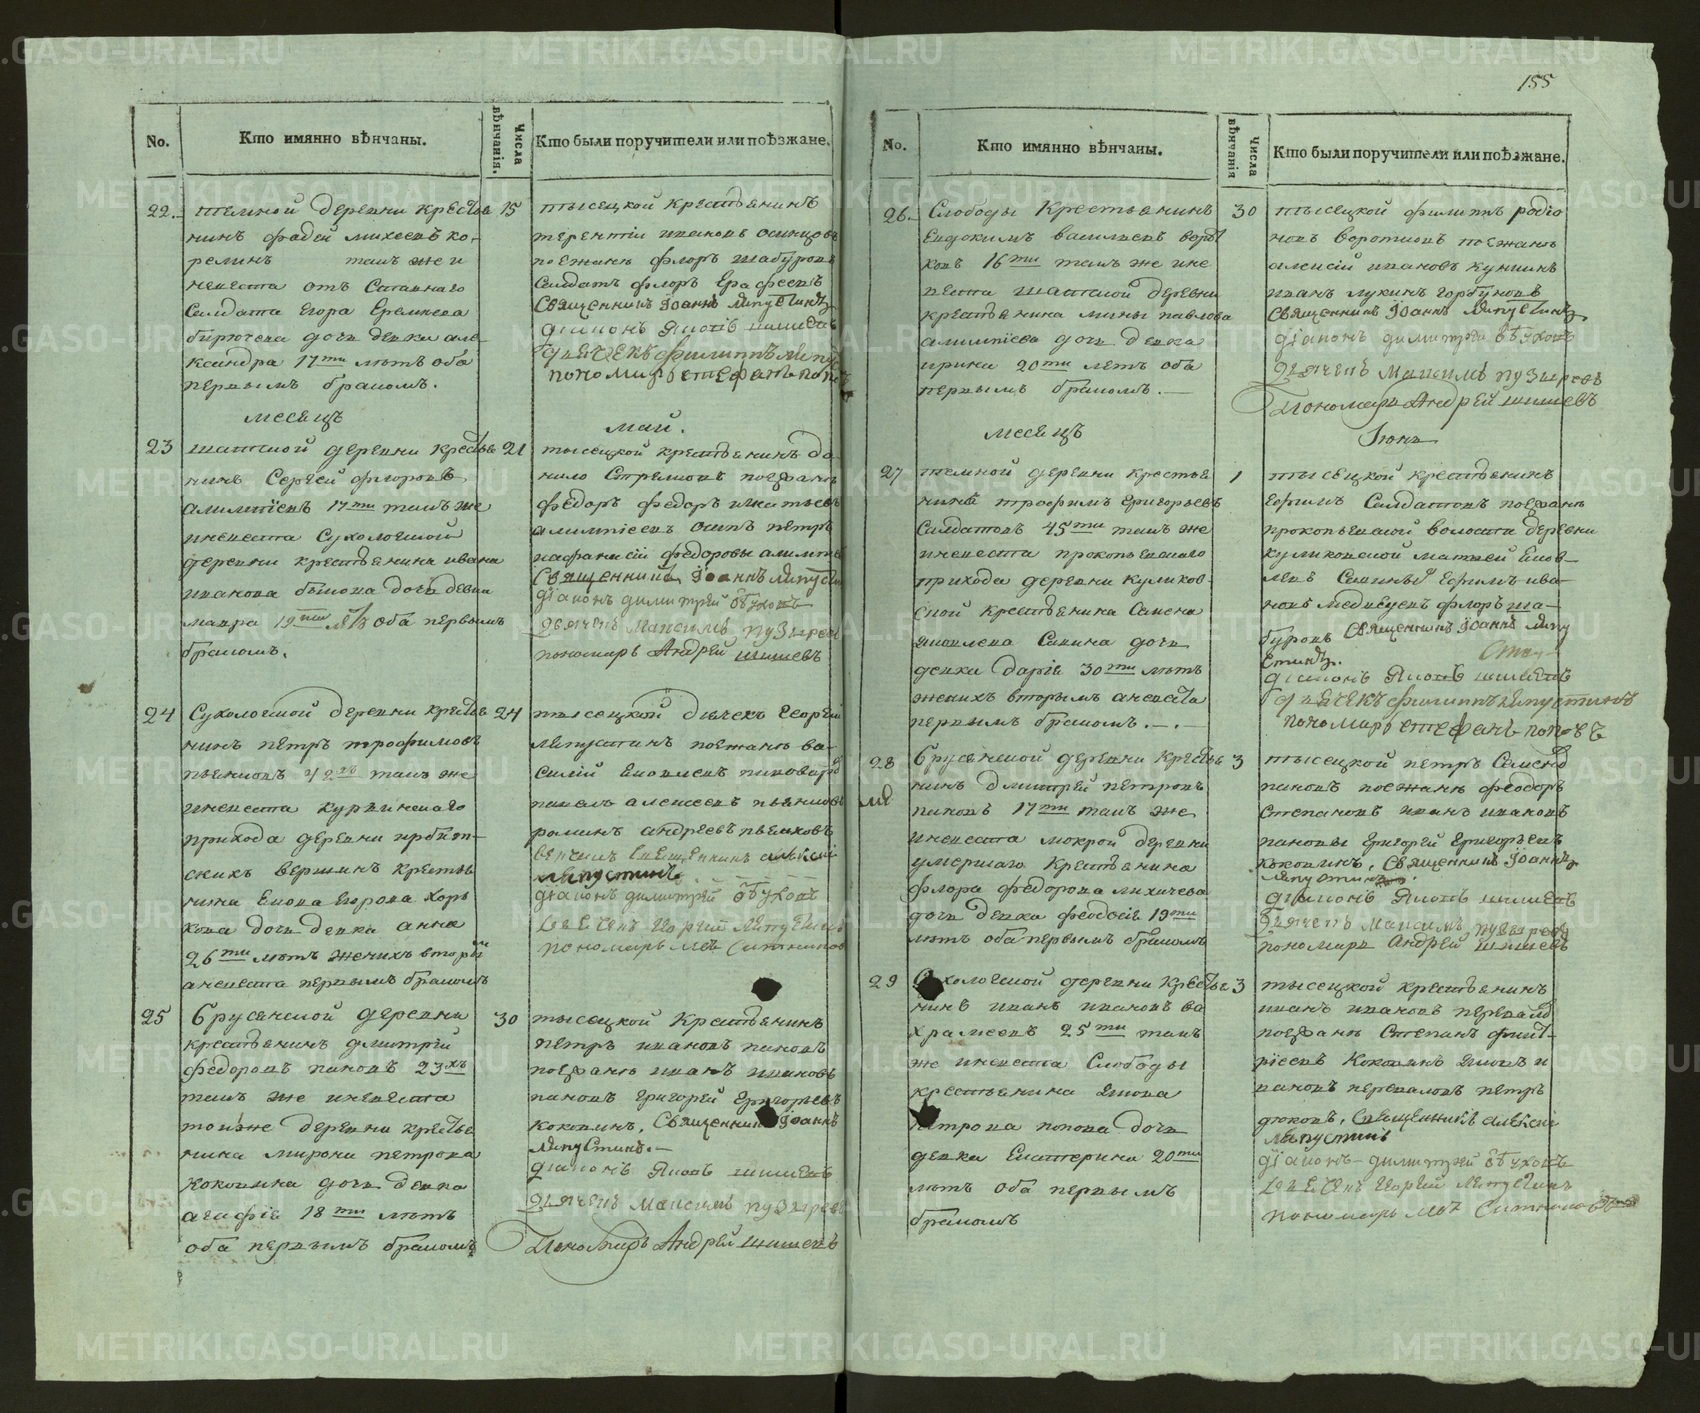 155
No.
Кто имянно вѣнчаны.
Числа вѣнчанія.
Кто были поручители или поѣзжане.
22.
темной деревни крестья
нинъ фадей михеевъ ко-
релинъ тамъ же и
невеста отъ Ставнаго
Салдата Егора Еремеева
бирючева дочь девка але-
ксандра 17ти лѣтъ оба
первымъ бракомъ.
15
тысецкой крестьянинъ
терентіи ивановъ осинцовъ
поежаня флоръ шабуровъ
Салдатъ флоръ Ерафеевъ
Священникъ Іоаннъ Ляпустинъ
діаконъ Яковъ шишевъ
дьячекъ филиппъ ляпус
пономарь стефанъ попо
месецъ
май.
23
шатской деревни крестья
нинъ Сергей флоровъ
алимпіевъ 17ти тамъ же
и невеста Сухоложской
деревни крестьянина ивана
иванова быкова дочь девка
мавра 19ти лѣ оба первымъ
бракомъ.
21
тысецкой крестьянинъ да-
нило Стремовъ поезжаня
федоръ федоръ игнатьевъ
алимпіевъ осипъ петръ
и афанасій федоровы алимпіе
Священникъ Іоаннъ Ляпустин
діаконъ димитрей обуховъ
дьячекъ Максимъ пузырев
пономарь Андрей шишевъ
24
Сухоложской деревни крестья
нинъ петръ трофимовъ
пьянковъ 42хъ тамъ же
и невеста курьинскаго
прихода деревни ирбит-
скихъ вершинъ крестья
нина Екова Егорова хорь
кова дочь девка анна
26ти лѣтъ женихъ вторым
а невеста первымъ бракомъ
24
тысецкой дьячекъ Георгий
ляпустинъ поежаня ва-
силій Яковлевъ
павелъ алексеевъ пьянковъ
романъ андреевъ пьянковъ
венчалъ священникъ алексій
ляпустинъ
діаконъ димитрей обуховъ
дьячекъ Георгий Ляпустинъ
пономарь Ситниковъ
25
брусянской деревни
крестьянинъ дмитрей
федоровъ пановъ 23хъ
тамъ же и невеста
той же деревни крестья
нина мирона петрова
кокшина дочь девка
агафія 18ти лѣтъ
оба первымъ бракомъ
30
тысецкой крестьянинъ
петръ ивановъ пановъ
поезжаня иванъ ивановъ
пановъ григорей григорьевъ
кокшинъ. Священникъ Іоаннъ
Ляпустинъ.
діаконъ Яковъ шишевъ
дьячекъ Максимъ пузырев
Пономарь Андрей шишевъ
No.
Кто имянно вѣнчаны.
Числа вѣнчанія
Кто были поручители или поѣзжане.
26.
Слободы крестьянинъ
Евдокимъ васильевъ воро
ковъ 16ти тамъ же и не
веста шатской деревни
крестьянина мины павлова
алимпіева дочь девка
ирина 20ти летъ оба
первымъ бракомъ.
30
тысецкой филиппъ родіо
новъ воротковъ поежаня
алексій ивановъ кункинъ
иванъ лукинъ горбуновъ
Священникъ Іоаннъ Ляпустинъ
діаконъ димитрей обуховъ
дьячекъ Максимъ пузыревъ
Пономарь Андрей шишевъ
месецъ
Іюнь
27
темной деревни крестья
нинъ трофимъ Григорьевъ
Салдатовъ 45ти тамъ же
и невеста прокопьевскаго
прихода деревни куликов-
ской крестьянина Семена
яковлева Савина дочь
девка дарія 30ти лѣтъ
женихъ вторымъ а невеста
первымъ бракомъ.
1
тысецкой крестьянинъ
Ефимъ Салдатовъ поезжаня
прокопьевской волости деревни
куликовской матвей Еков-
левъ Савинъ Ефимъ ива-
новъ медведевъ флоръ ша-
буровъ Священникъ Іоаннъ Ляпу
стинъ.
діаконъ Яковъ шишевъ
дьячекъ филиппъ ляпустинъ
пономарь стефанъ поповъ
28
брусянской деревни крестья
нинъ дмитрей петровъ
пановъ 17ти тамъ же
и невеста мокрой деревни
умершаго крестьянина
флора федорова лихачева
дочь девка феодосія 19ти
лѣтъ оба первымъ бракомъ
3
тысецкой петръ Семено
пановъ поежаня феодоръ
Степановъ иванъ ивановъ
пановы Григорей Григорьевъ
кокшинъ. Священникъ Іоаннъ
Ляпустинъ.
діаконъ Яковъ шишевъ
дьячекъ Максимъ пузырев
пономарь Андрей шишевъ
29
Сухоложской деревни крестья
нинъ иванъ ивановъ ва
храмеевъ 25ти тамъ
же и невеста Слободы
крестьянина Якова
петрова попова дочь
девка Екатерина 20ти
лѣтъ оба первымъ
бракомъ
3
тысецкой крестьянинъ
иванъ ивановъ перевало
поезжаня Степанъ
Кокшинъ Яковъ и
вановъ переваловъ петръ
дюковъ. Священникъ алексій
Ляпустинъ
діаконъ димитрей обуховъ
дьячекъ Георгий Ляпустинъ
пономарь Ситниковъ
METRIKI.GASO-URAL.RU